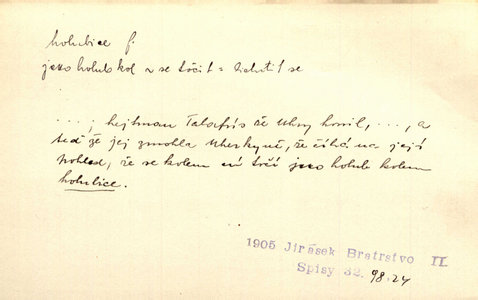 holubice f.
jako holub kol ~ se točit = lichotit se
...; hejtman Talafús že Uhry honil, ..., a
teď že jej zmohla Uherkyně, že čihá na její
pohled, že se kolem ní točí jako holub kolem
holubice.
1905 Jirásek Bratrstvo II.
Spisy 32. 98.24